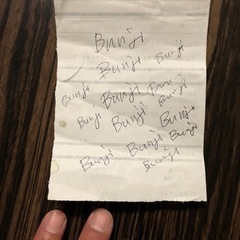 Bunji
Bunji Bunji
Bunji Bunji Bun
Bunji
Bunji Bunji Bunji
Bunji Bunji
Bunji Bunji